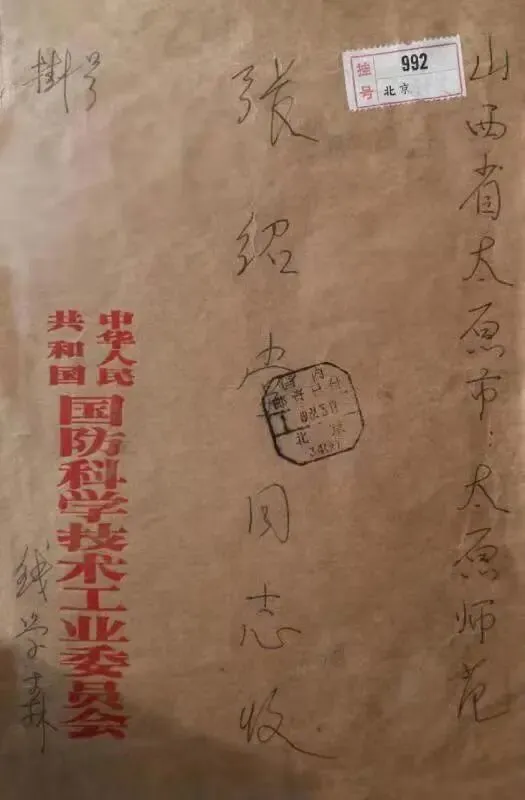 山西省太原市:太原师范
挂号
992
北京
张绍堂同志收
北京
挂号
中华人民
共和国
国防科学技术工业委员会
钱学森